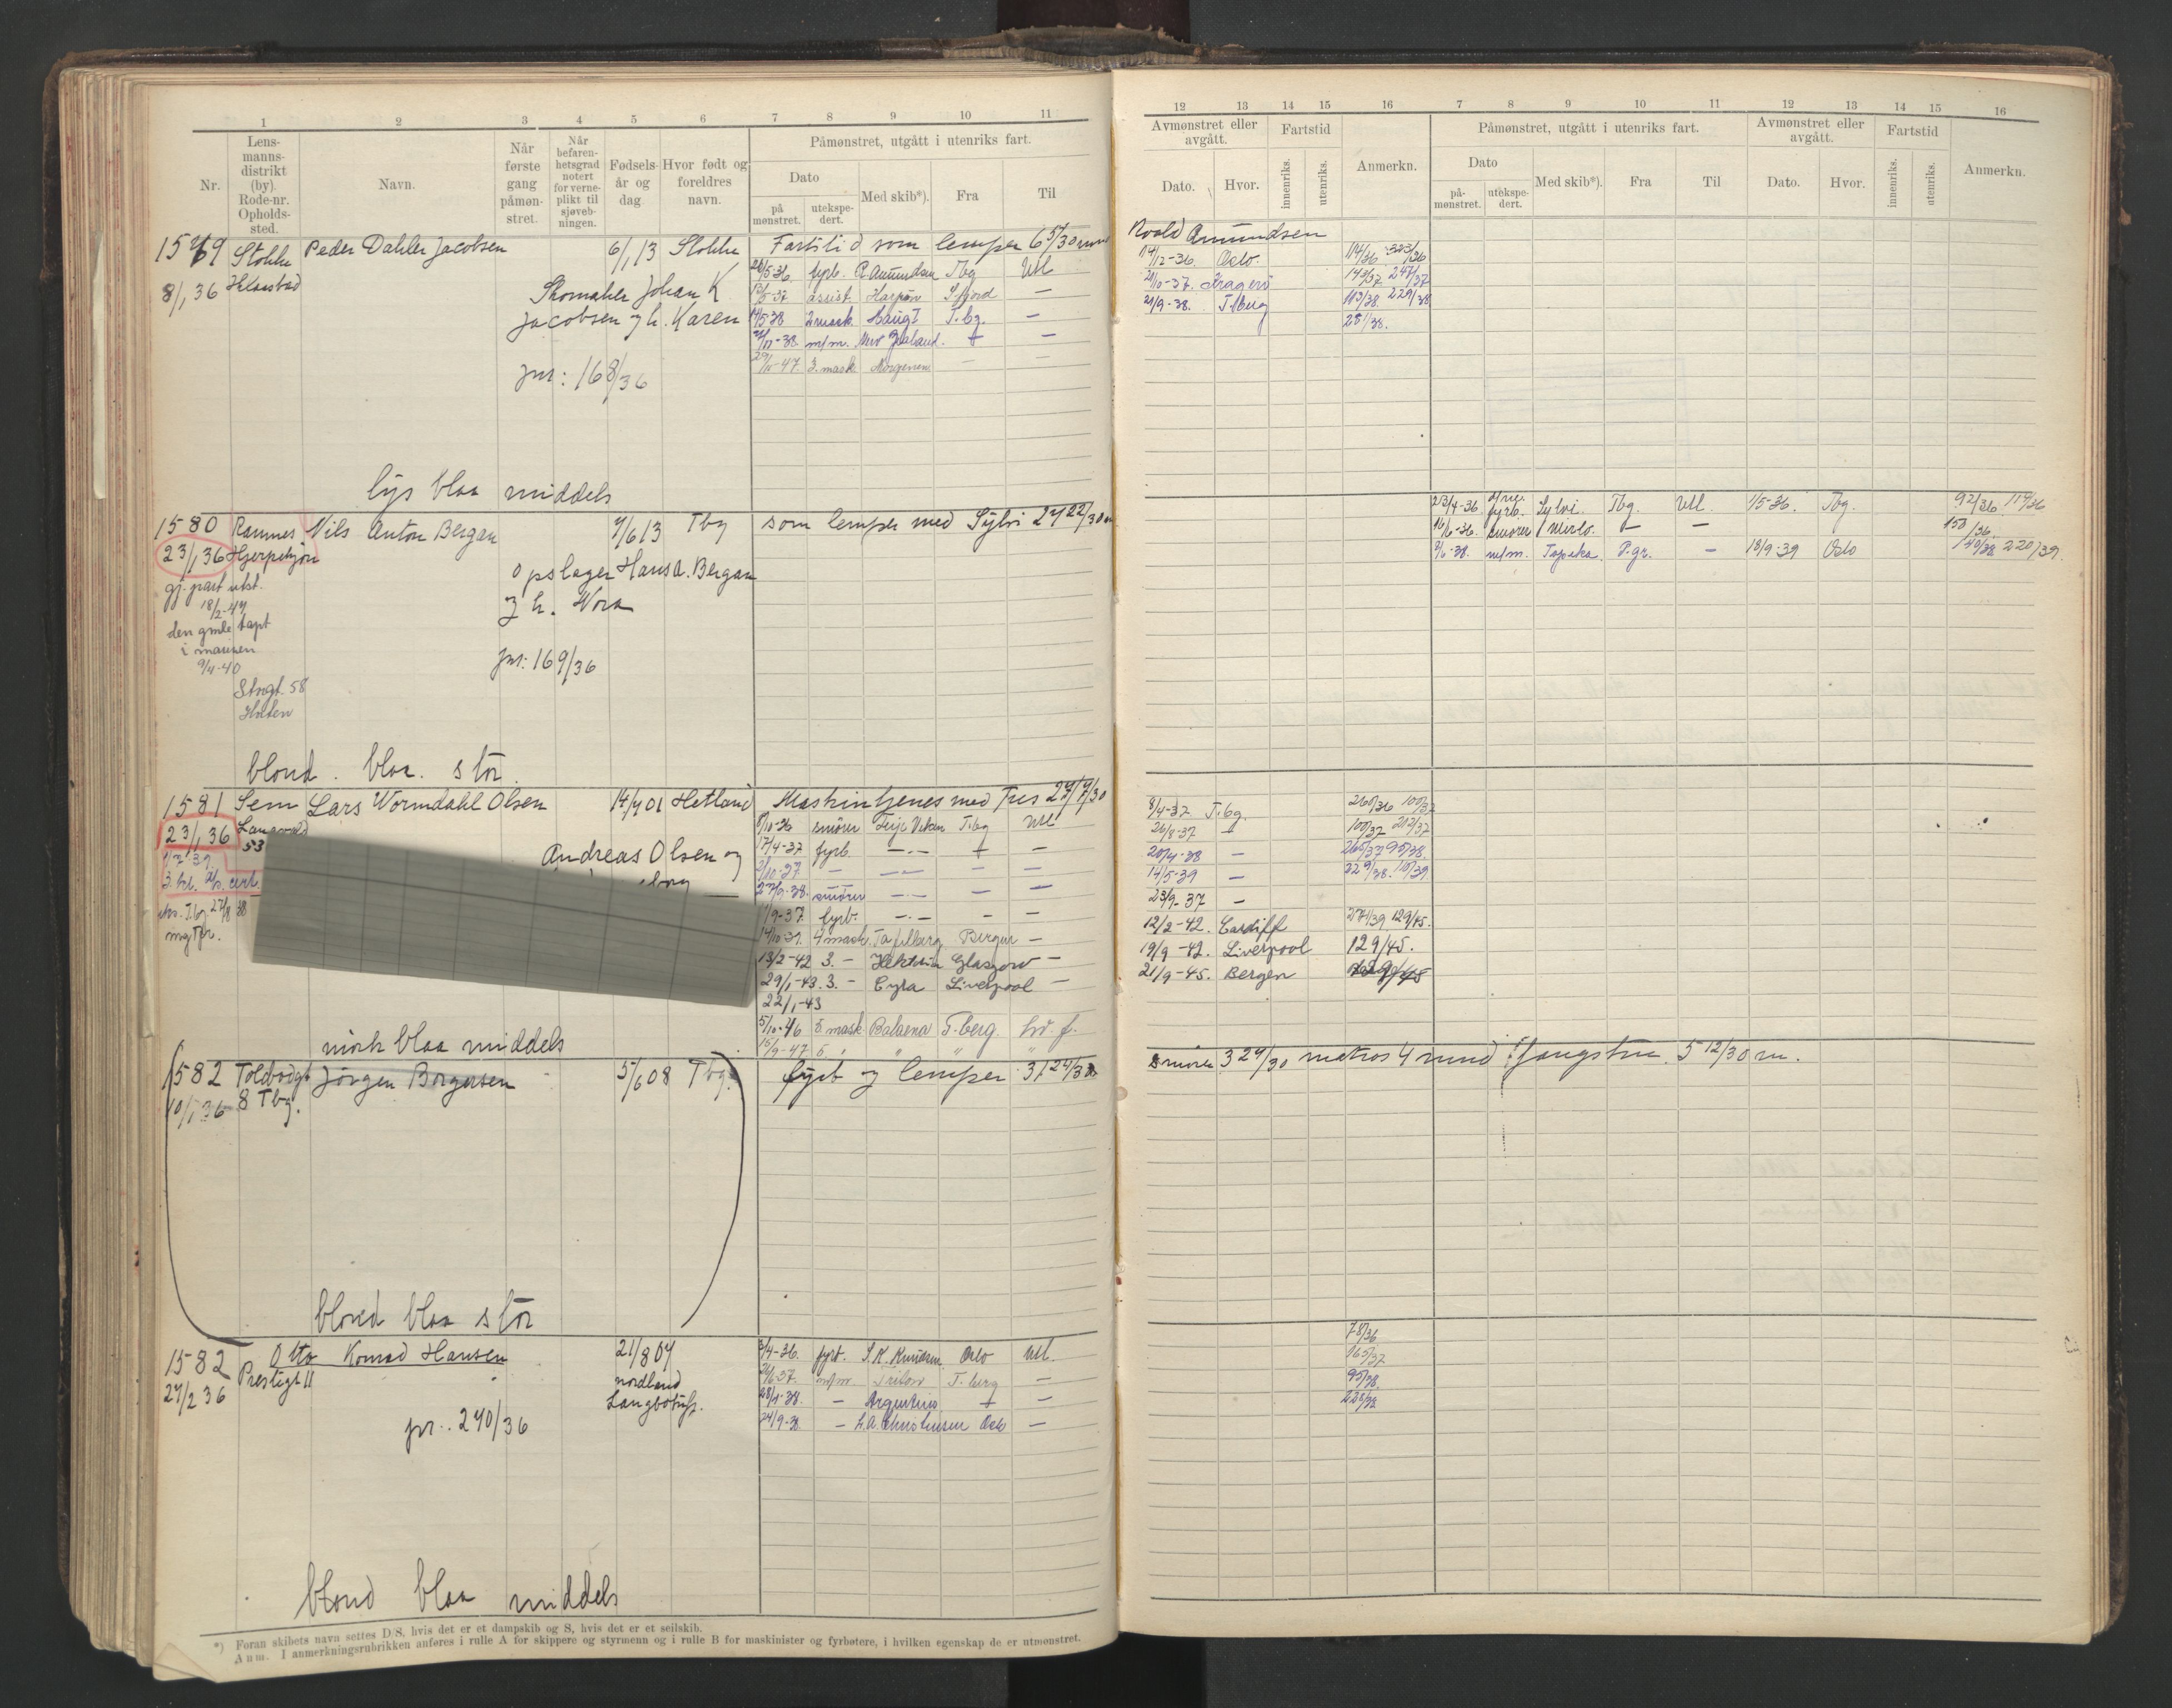 1 2 3 4 5 6 7 8 9 10 11
Nr.
Lens-
manns-
distrikt
(by).
Rode-nr.
Opholds-
sted.
Navn.
Når
første
gang
påmøn-
stret.
Når
befaren-
hetsgrad
notert
for verne-
plikt til
sjøveb-
ningen.
Fødsels-
år og
dag
Hvor født og
foreldres
navn.
Påmønstret, utgått i utenriks fart.
Dato
på
mønstret.
utekspe-
dert.
Med skib*).
Fra
Til
1579 Stokke Peder Dahler Jacobsen 6/1 13 Stokke Fartstid som lemper 6 5/30 mnd
8/1 36
Skomaker Johan K
Jacobsen og h. Karen
26/5-36. fyrb. R. Amundsen Tbg Utl
assist. —
14/5 38 2 mask. Haug I T.bg. —
m/m. New Zealand. —
29/10-47 3. mask
jnr: 168/36
lys blaa middels
1580 Ramnes Nils Anton Bergan 7/6 13 Tbg som lemper med Sylvi 27 22/30 m
23/1 36
gj. part utst.
18/2-47
den gmle tapt
i marinen
9/4-40
Opslager Hans A. Bergan
og h. Nora
jnr: 169/36
Stngt. 58
blond. blaa. stor.
1581 Sem Lars Wormdahl Olsen 14/7 01 Hetland Maskintjenes med Tres 27 7/30
23/1 36
53
Andreas Olsen og
8/10-36 smører Terje Viken T.bg Utl
17/4-37 fyrb. —
27/9-38. smører —
1/9-37. fyrb. —
14/10-39. 4 mask. Tafelberg Bergen —
13/2-42 3. — Hektoria Glasgow —
29/1-43. 3. — Cyra Liverpool —
22/1-43
5/10-46 5. mask Balaena T.berg hv. f.
15/9-47 5. " " "
mørk blaa middels
1582 Toldbodgt Jørgen Borgersen 5/6 08 Tbg. fyrb og lemper 37 24/30
10/1 36 8 Tbg.
blond blaa stor
1582 Otto Konrad Hansen 21/8 07
27/2 36 Prestegt 11
nordland
jnr.: 240/36
fyrb. S.K. Knudsen. Oslo Utl.
m/m. Triton T.berg —
28/1-38. — Argentina —
24/9-38. — L.A. Christensen Oslo —
blond blaa middels
*) Foran skibets navn settes D/S, hvis det er et dampskib og S, hvis det er et seilskib.
Anm. I anmerkningsrubrikken anføres i rulle A for skippere og styrmenn og i rulle B for maskinister og fyrbøtere, i hvilken egenskap de er utmønstret.
12 13 14 15 16 7 8 9 10 11 12 13 14 15 16
Avmønstret eller
avgått.
Dato.
Hvor.
Fartstid
innenriks.
utenriks.
Anmerkn.
Påmønstret, utgått i utenriks fart.
Dato
på-
mønstret.
utekspe-
dert.
Med skib*).
Fra
Til
Avmønstret eller
avgått.
Dato.
Hvor.
Fartstid
innenriks.
utenriks.
Anmerkn.
Roald Amundsen
14/12-36. Oslo. 114/36 323/36
21/10-37. Kragerø 143/37 247/37
21/9-38. T.berg 113/38. 229/38
281/38.
23/4-36 fyrb. Sylvi. Tbg. Utl. 1/5-36. Tbg. 92/36 117/36
16/6-36. smører — — 150/36.
2/6-38. m/m. Topeka. P.gr. — 18/9-39 Oslo 140/38 220/39
8/4-37 T.bg. 260/36 100/37
26/8-37 — 100/37 212/37
20/4-38 — 265/37 95/38.
14/5-39 — 229/38. 110/39
23/9-37 —
12/2-42. Cardiff 271/39 129/45.
19/9-42. Liverpool 129/45.
21/9-45. Bergen
smører 3 27/30 matros 4 mnd fangstm. 5 12/30 m.
78/36
165/37
95/38.